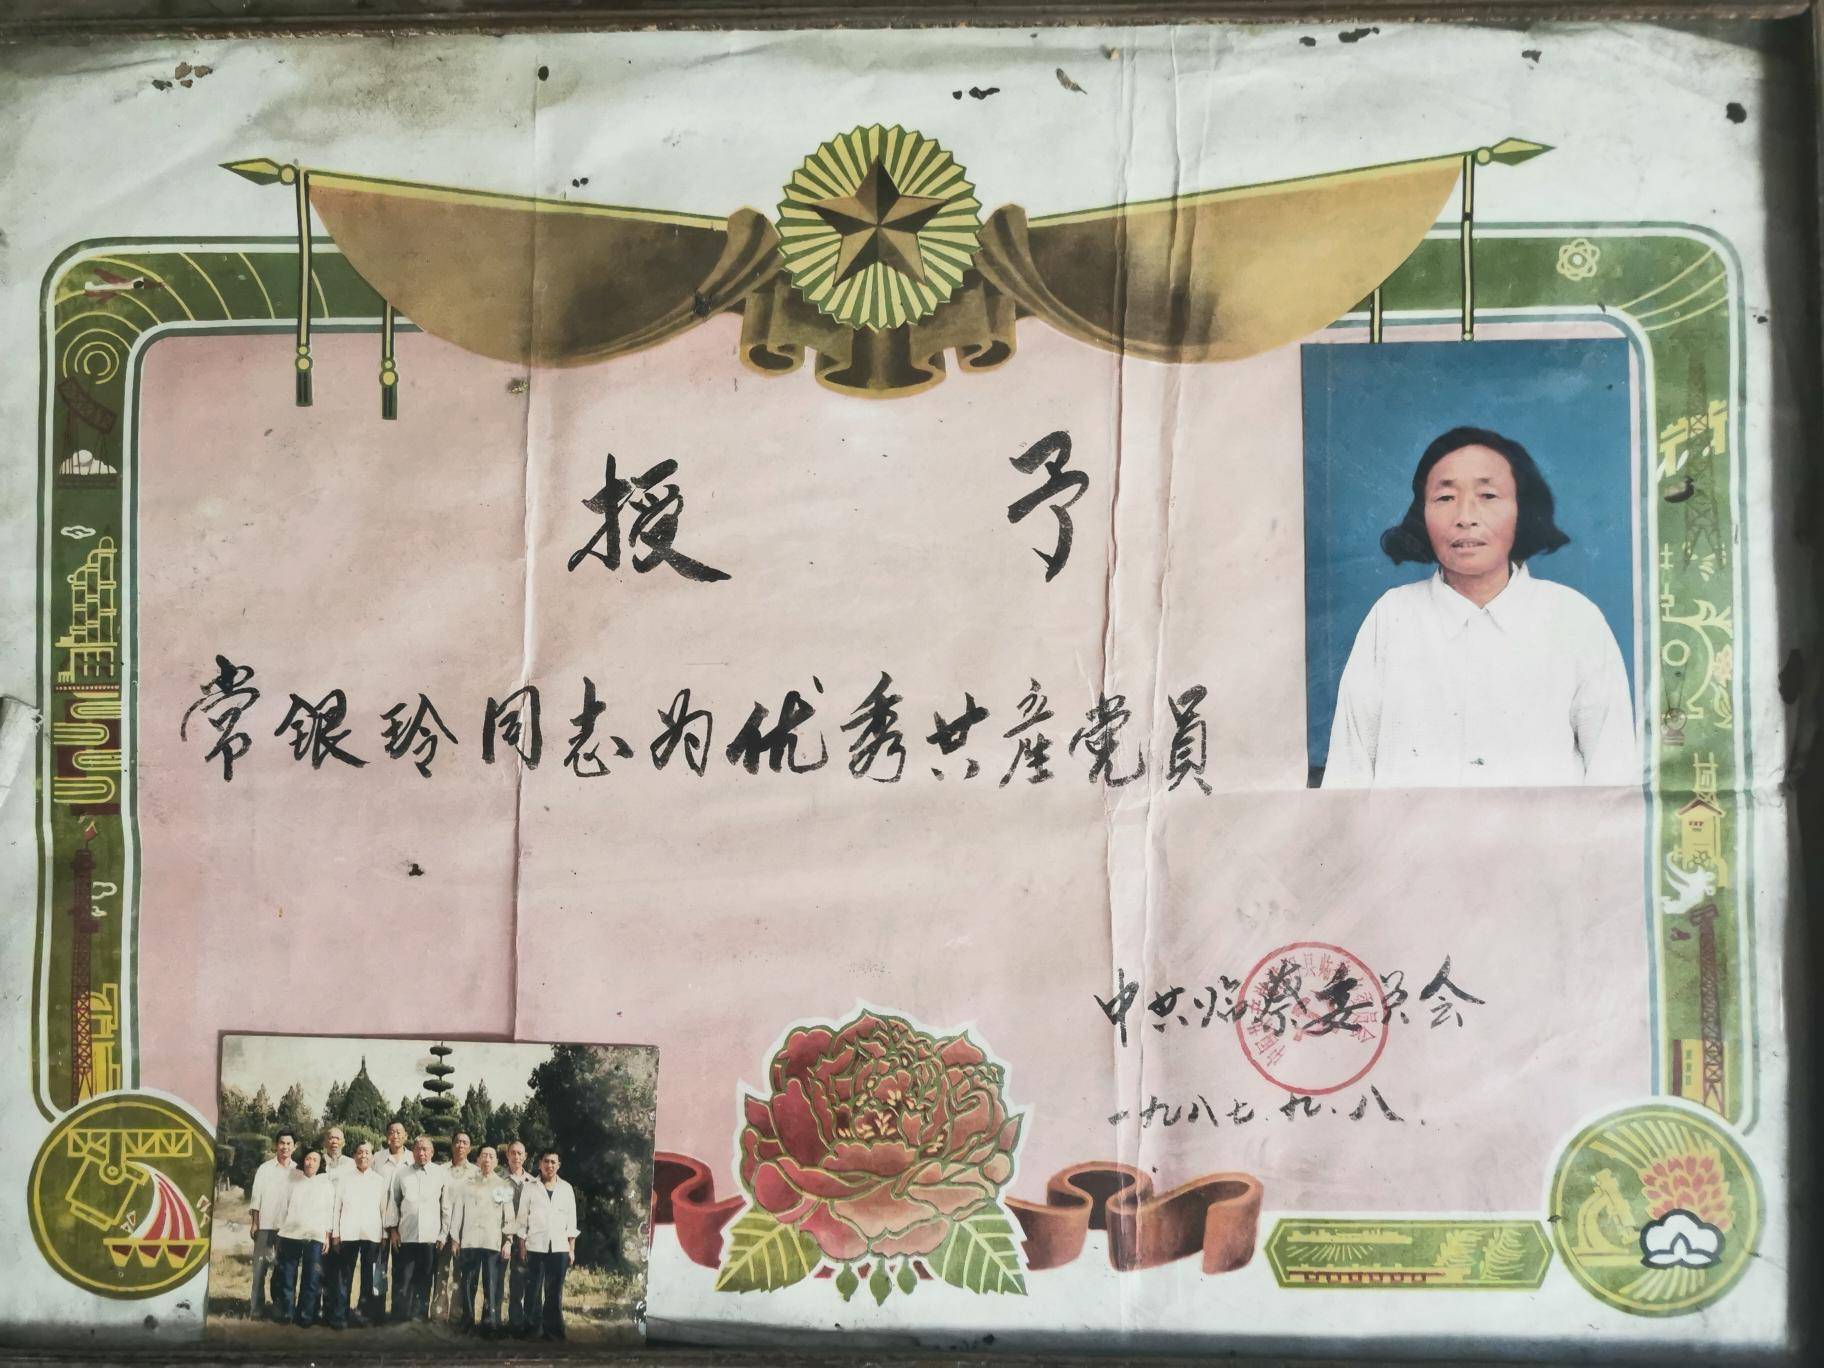 授予
常银玲同志为优秀共产党员
中共临蔡委员会
一九八七.九.八.